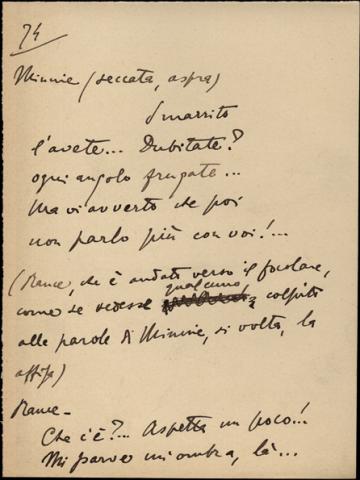 74
Minnie (seccata, aspra)
Smarrito
l'avete... Dubitate?
ogni angolo frugate...
Ma vi avverto che poi
non parlo più con voi!...
(Rance, che è andato verso il focolare,
qualcuno
come se vedesse colpito
alle parole di Minnie, si volta, la
affissa)
Rance -
Che c'è?... Aspetta un poco!...
Mi parve un'ombra, là...